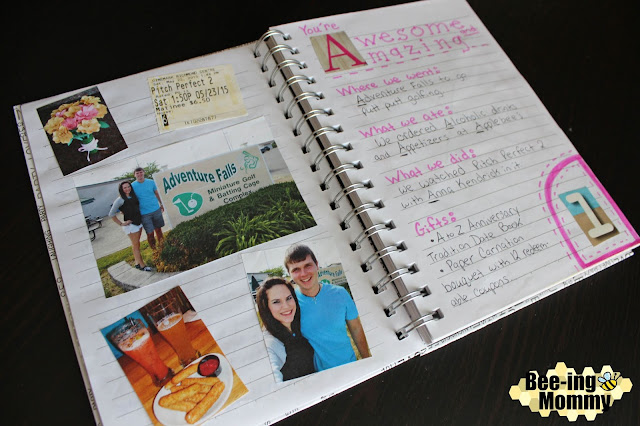 Pitch Perfect 2
Sat 1:50P 05/23/15
Matinee $6.50
3
Adventure Falls
Miniature Golf
& Batting Cage
Complex
You're
Awesome and
Amazing
Where we went:
Adventure Falls to go
putt putt golfing.
What we ate:
We ordered Alcoholic drinks
and Appetizers at Applebee's
What we did:
We watched Pitch Perfect 2
with Anna Kendrick in it
Gifts:
• A to Z Anniversary
Tradition Date Book
• Paper Carnation
bouquet with 12 redeem
able coupons.
1
Bee-ing
Mommy